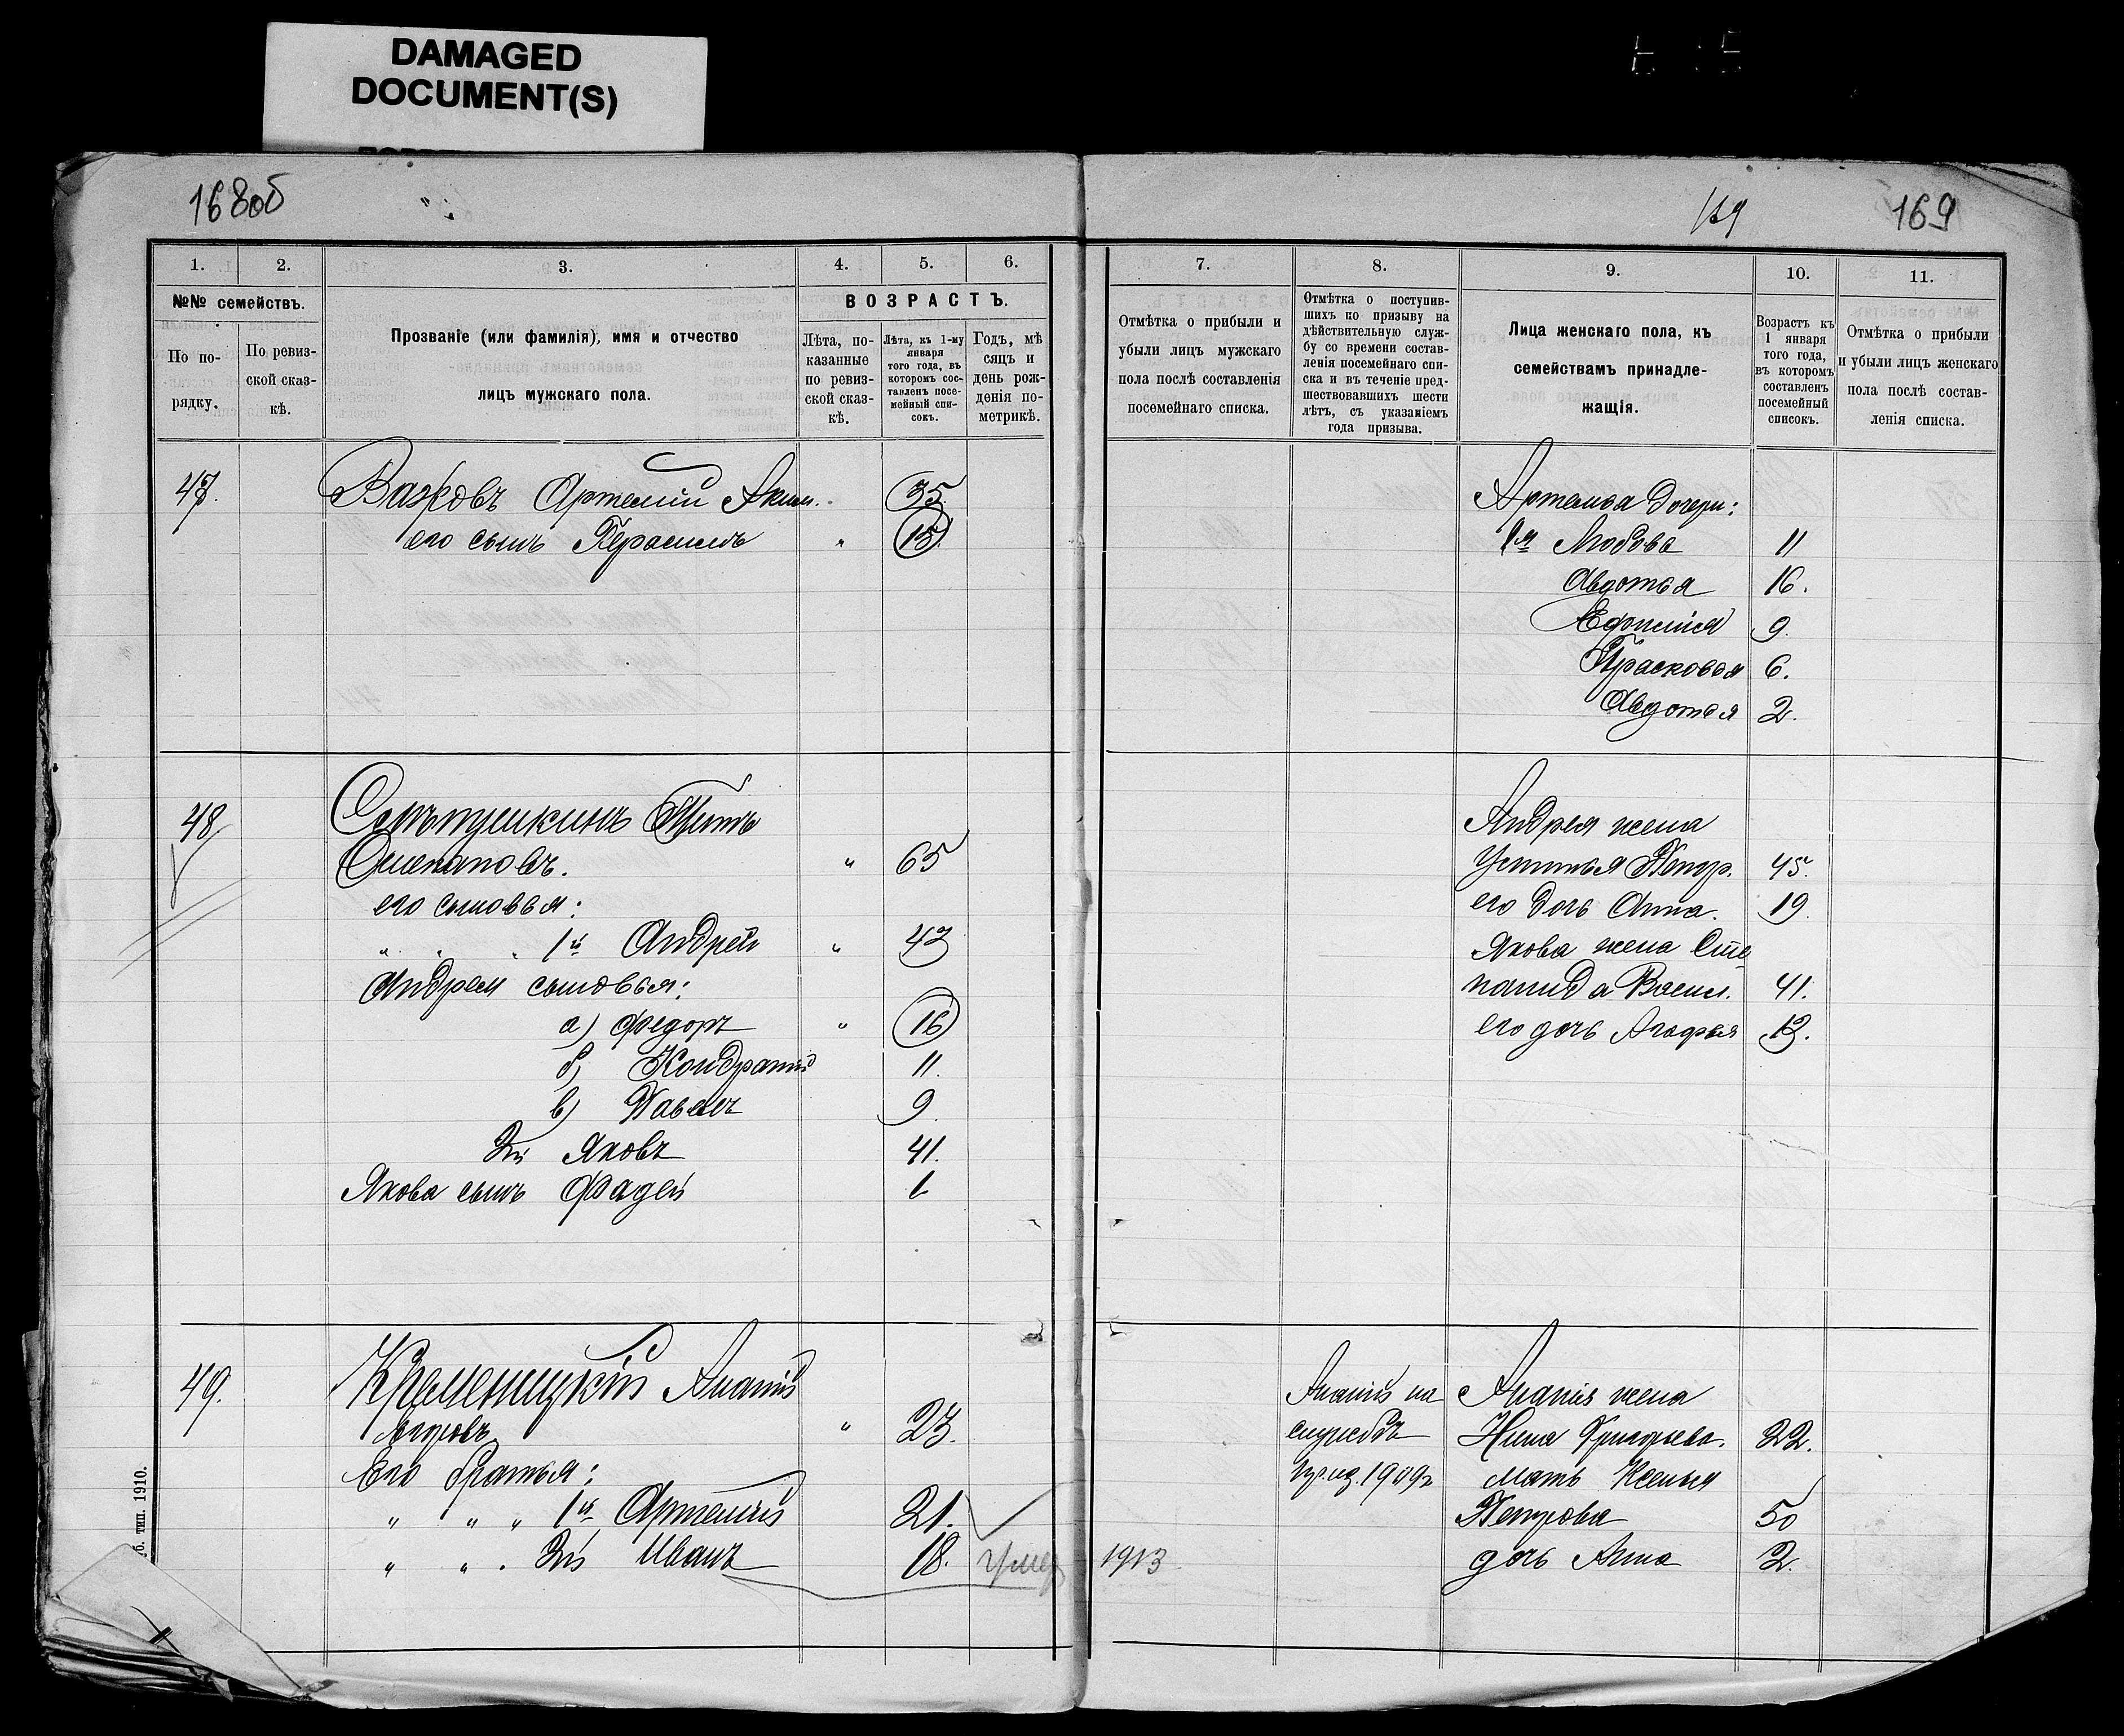 DAMAGED
DOCUMENT(S)
168об
169
1. 2. 3. 4. 5. 6.
№№ семействъ.
По по-
рядку.
По ревиз-
ской сказ-
кѣ.
Прозваніе (или фамилія), имя и отчество
лицъ мужскаго пола.
ВОЗРАСТЪ.
Лѣта, по-
казанные
по ревиз-
ской сказ-
кѣ.
Лѣта, къ 1-му
января
того года, въ
которомъ сос-
тавленъ посе-
мейный спи-
сокъ.
Годъ, мѣ
сяцъ и
день рож-
денія по-
метрикѣ.
47. Артемій Аким. 35
его сынъ Герасимъ " 15.
48 Титъ
Степановъ. " 65
его сыновья:
" " " 1й Андрей " 43
Андрея сыновья:
а) Федоръ " 16
б) Кондратій 11.
в) Павелъ 9.
2й Яковъ 41.
Якова сынъ Фадей 1
49. Кременицкій Ананій
" 23.
Его братья:
" " " 1й Артемій 21.
" " " 2й Иванъ 18. умер
б. тип. 1910.
7. 8. 9. 10. 11.
Отмѣтка о прибыли и
убыли лицъ мужскаго
пола послѣ составленія
посемейнаго списка.
Отмѣтка о поступив-
шихъ по призыву на
дѣйствительную служ-
бу со времени состав-
ленія посемейнаго спи-
ска и въ теченіе пред-
шествовавшихъ шести
лѣтъ, съ указаніемъ
года призыва.
Лица женскаго пола, къ
семействамъ принадле-
жащія.
Возрастъ къ
1 января
того года,
въ которомъ
составленъ
посемейный
списокъ.
Отмѣтка о прибыли
и убыли лицъ женскаго
пола послѣ состав-
ленія списка.
Артемья дочери:
1я Любова 11
Авдотья 16.
Ефимія 9.
Прасковья 6.
Авдотья 2.
Андрея жена
Устинья Петр. 45.
его дочь Анна. 19.
Якова жена Сте
панида Васил. 41.
его дочь Агафья 13.
Ананій на Ананія жена
службѣ Нина Григорьева. 22.
1909г мать Ксенья
Петрова 50
1913 дочь Анна 2.